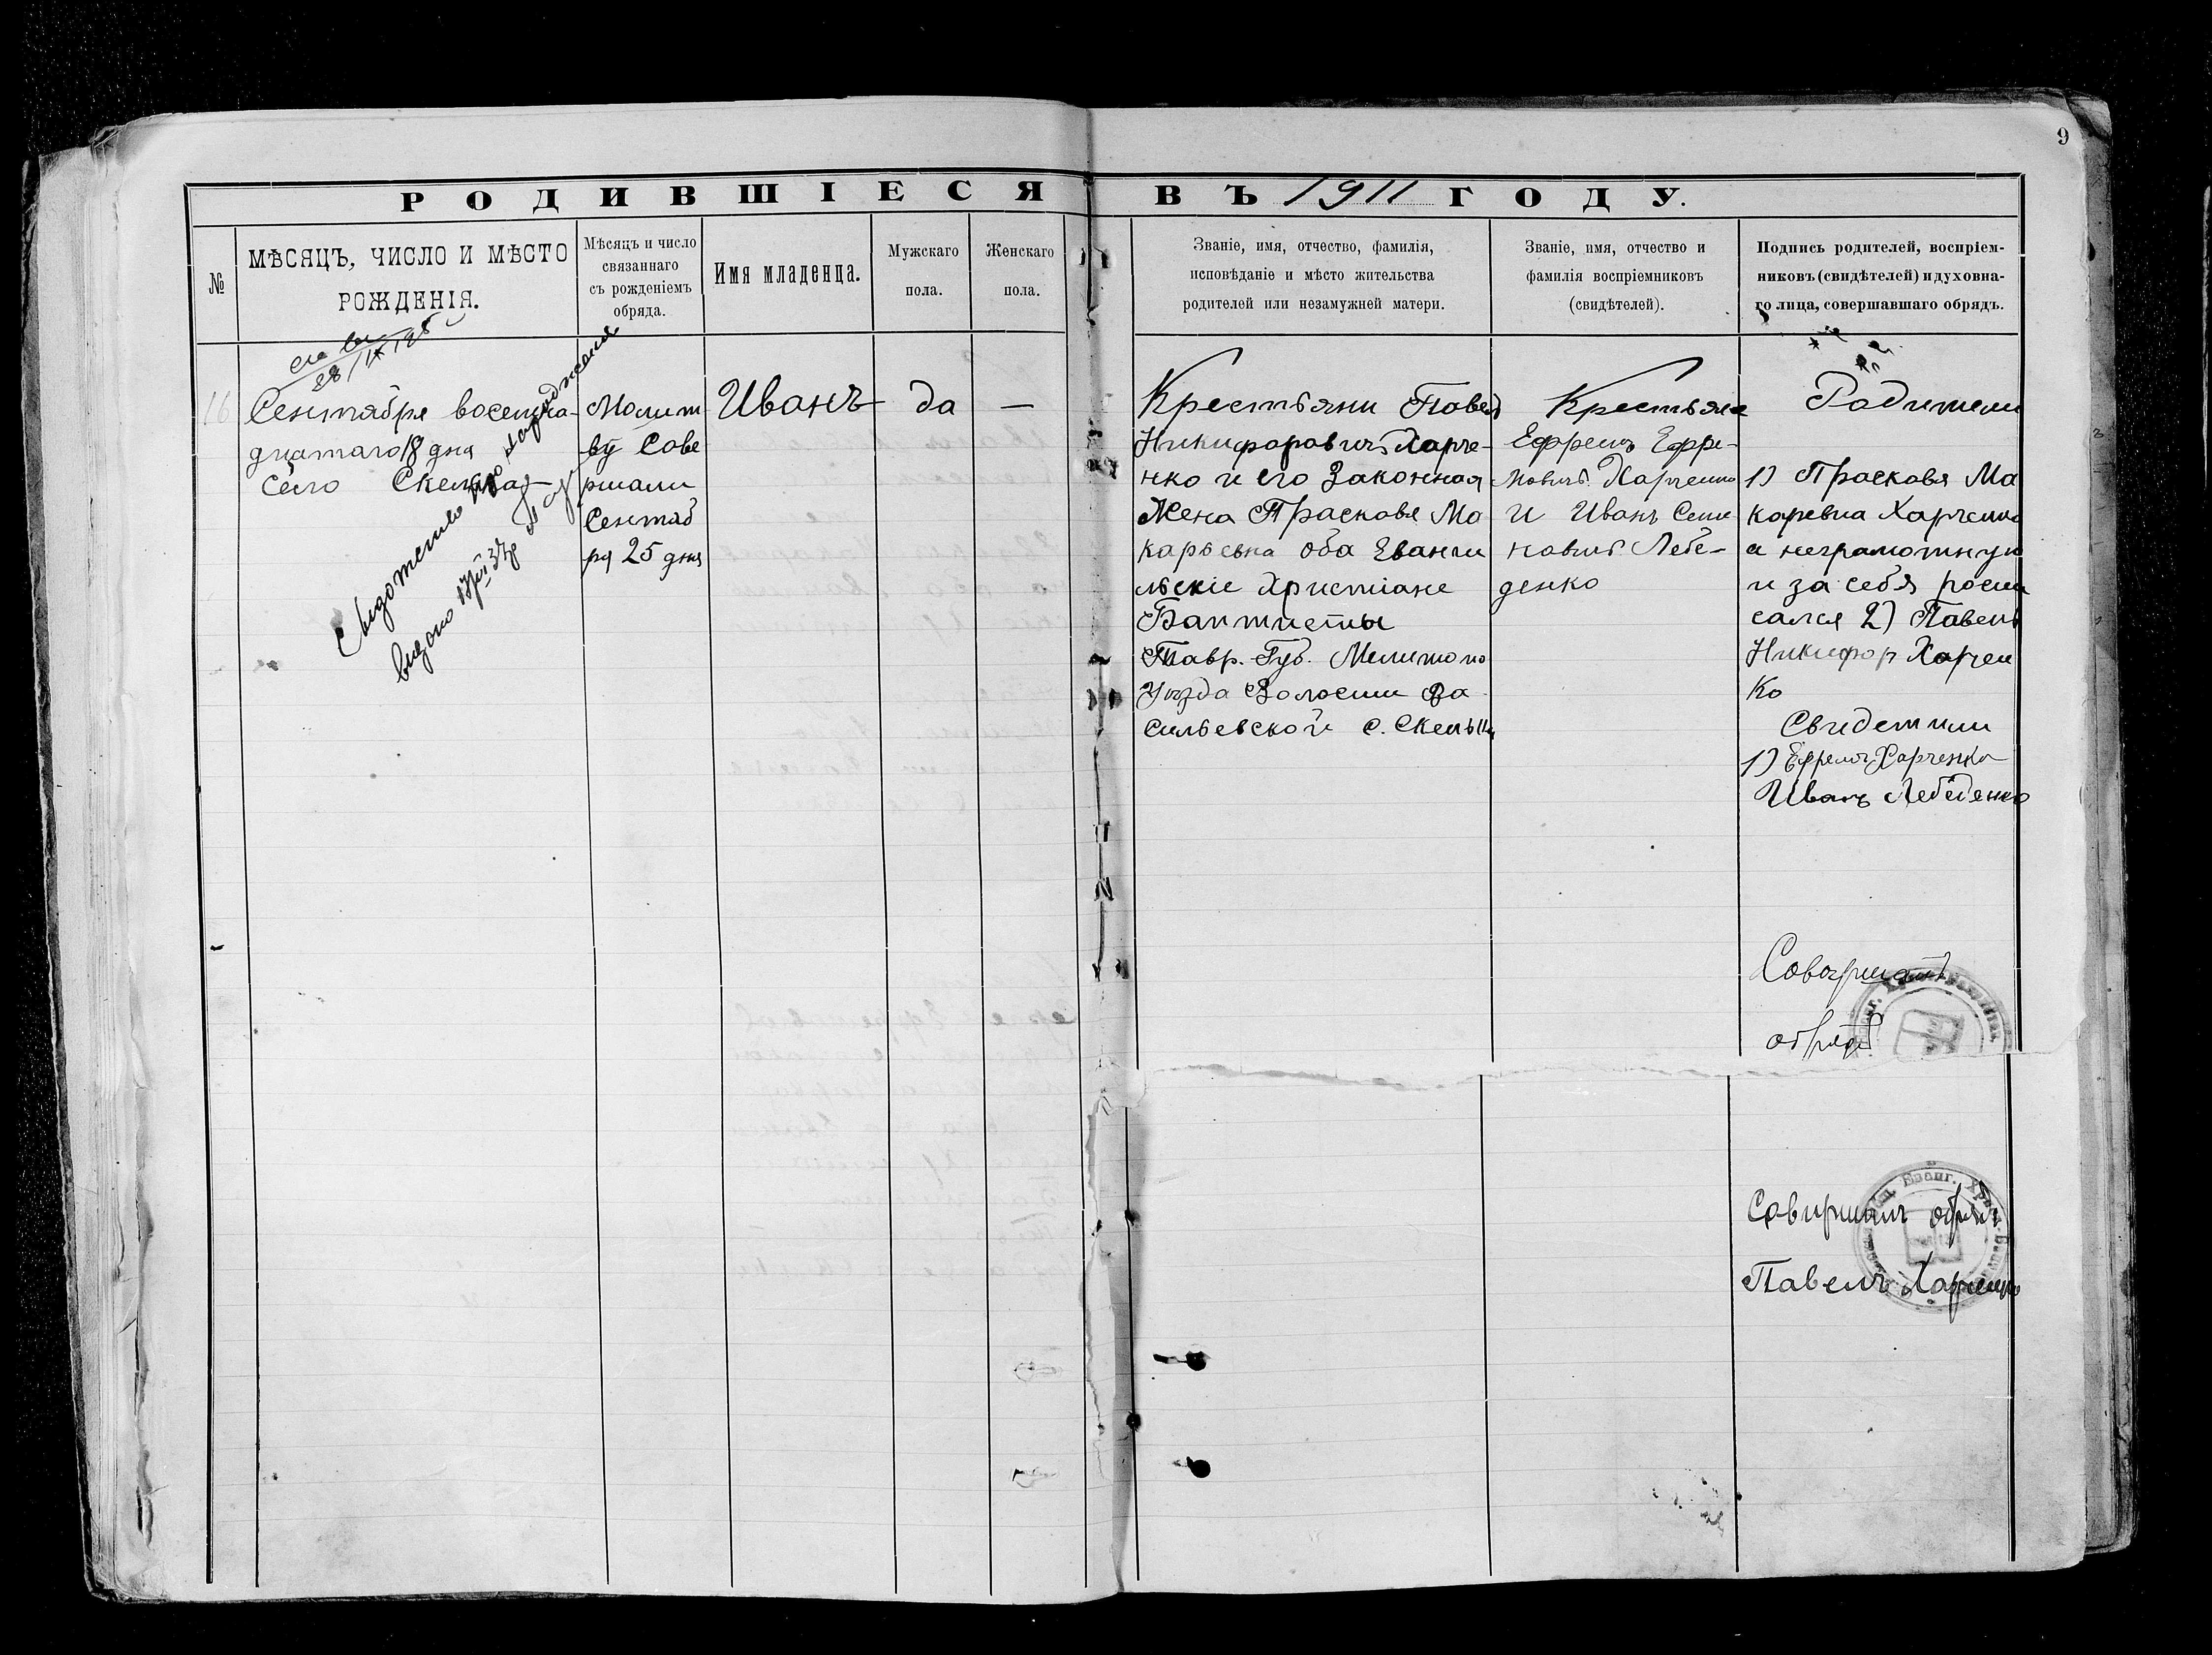 9
РОДИВШІЕСЯ ВЪ 1911 ГОДУ.
№
МѢСЯЦЪ, ЧИСЛО И МѢСТО
РОЖДЕНІЯ.
Мѣсяцъ и число
связаннаго
съ рожденіемъ
обряда.
Имя младенца.
Мужскаго
пола.
Женскаго
пола.
Званіе, имя, отчество, фамилія,
исповѣданіе и мѣсто жительства
родителей или незамужней матери.
Званіе, имя, отчество и
фамилія воспріемниковъ
(свидѣтелей).
Подпись родителей, воспріем-
никовъ (свидѣтелей) и духовна-
го лица, совершавшаго обрядъ.
16
Сентября восемна-
дцатаго 18 дня
Село Скелька
Свидотенво про народження
видано
Молит
ву Сове
ршали
Сентяб
ря 25 дня
Иванъ
да
—
Крестьяни Павел
Никифоровичъ Харче-
нко и его Законная
Жена Прасковя Ма
карьевна оба Еванги
льскіе Христіане
Баптисты
Тавр. Губ. Мелитопо
Уѣзда Волости Ва
сильевской с. Скельки
Крестьяне
Ефремъ Ефре-
мовичъ Харченко
И Иванъ Семе
новичъ Лебе-
денко
Родители
1) Прасковя Ма
каревна Харченко
а неграмотную
и за себя роспи
сался 2) Павелъ
Никифор Харчен
ко
Свидетили
1) Ефремъ Харченко
Иванъ Лебеденко
Совершалъ
обрядъ
Совиршилъ обрядъ
Павелъ Харченко
Еванг. Хр